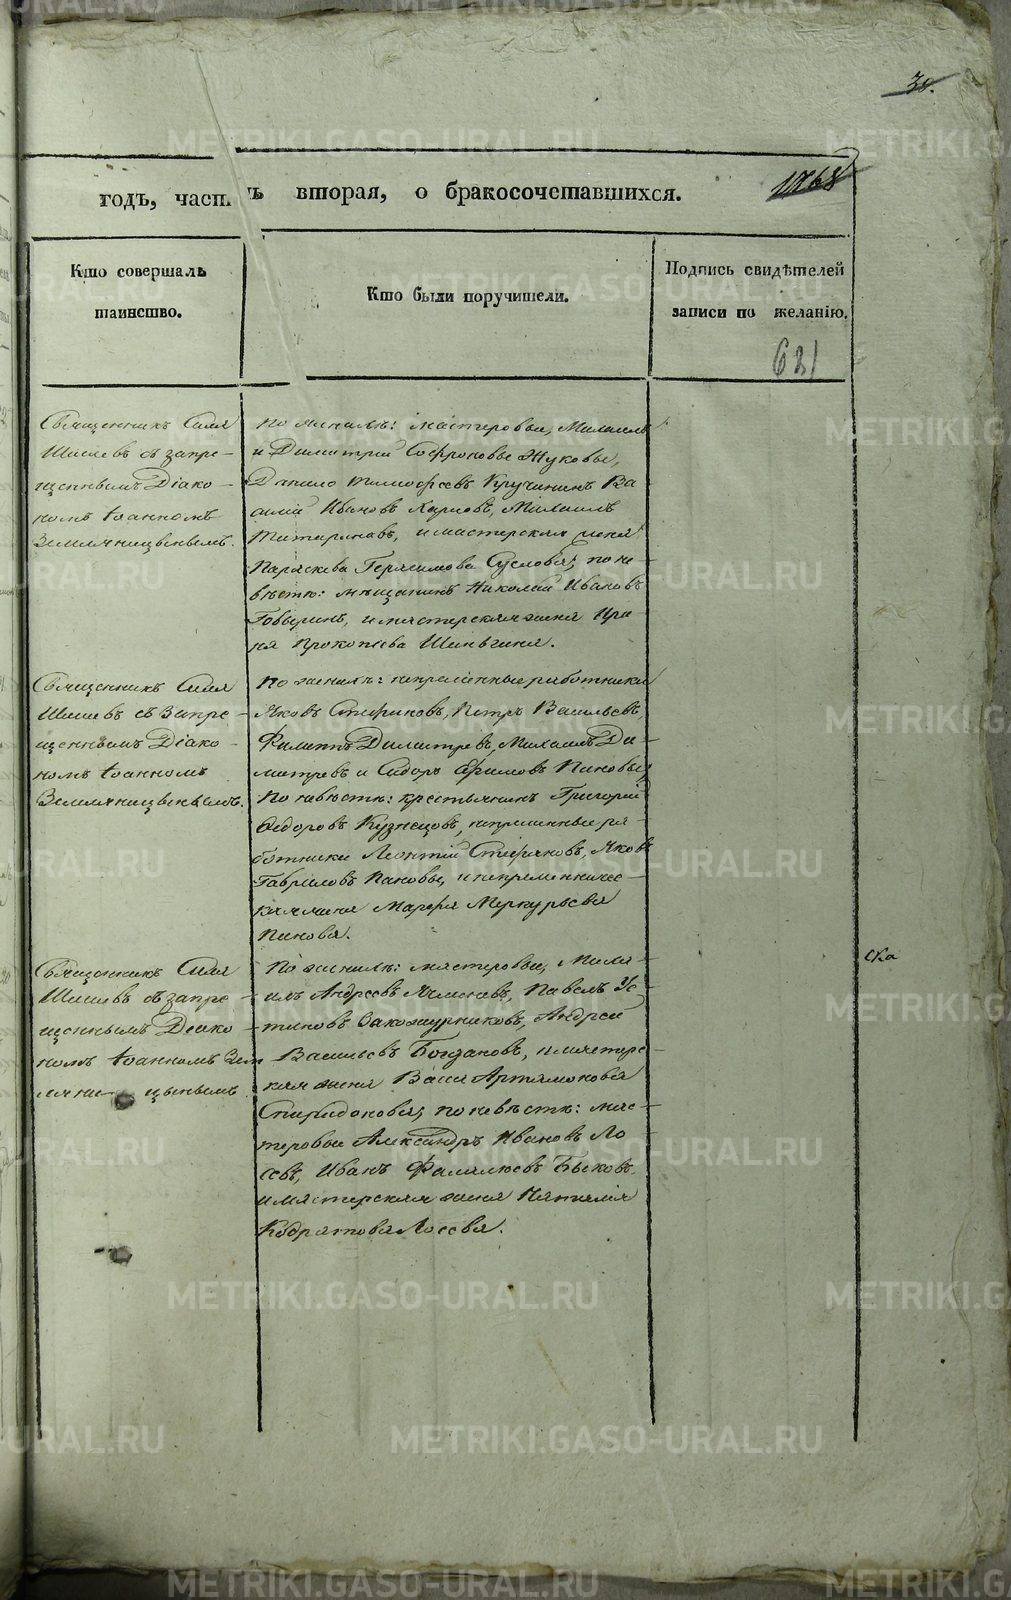 38.
годъ, часть вторая, о бракосочетавшихся.
1768
Кто совершалъ таинство.
Кто были поручители.
Подпись свидѣтелей записи по желанію.
621
Священникъ Сила
Шишевъ съ запре-
щеннымъ Діако-
номъ Іоанномъ
Земляницынымъ.
По женихѣ: мастеровые, Михаилъ
и Димитрій Софроновы Жуковы,
Данило Тимофеевъ Кручининъ Ва
силій Ивановъ Карповъ, Михаилъ
Титариновъ, и мастерская жена
Параскева Герасимова Суслова; по не
вѣстѣ: мѣщанинъ Николай Ивановъ
Говыринъ, и мастерская жена Ири
на Прокопьева Шинягина.
Священникъ Сила
Шишевъ съ Запре-
щеннымъ Діако-
номъ Іоанномъ
Земляницынымъ.
По женихѣ: непремѣнные работники
Яковъ Стефановъ, Петръ Васильевъ,
Филиппъ Димитревъ, Михаилъ Ди-
митревъ и Сидоръ Ефимовъ Пановы;
По невѣстѣ: крестьянинъ Григорій
Ѳедоровъ Кузнецовъ, непремѣнные ра-
ботники Леонтій Стефановъ, Яковъ
Гавриловъ Пановы, и непременничес-
кая жена Марфа Меркурьева
Панова.
Священникъ Сила
Шишевъ съ запре-
щеннымъ Деако-
номъ Іоанномъ Зем
ляни-цынымъ
По женихѣ: мастеровые, Миха-
илъ Андреевъ Ячменевъ, Павелъ Ус-
тиновъ Закожурниковъ, Андрей
Васильевъ Богдановъ, и мастерс-
кая жена Васса Артамонова
Спиридонова; по невѣстѣ: мас-
теровые Александръ Ивановъ Ло
севъ, Иванъ Фалалеевъ Быковъ,
и мастерская жена Наталія
Кодратова Лосева.
ска